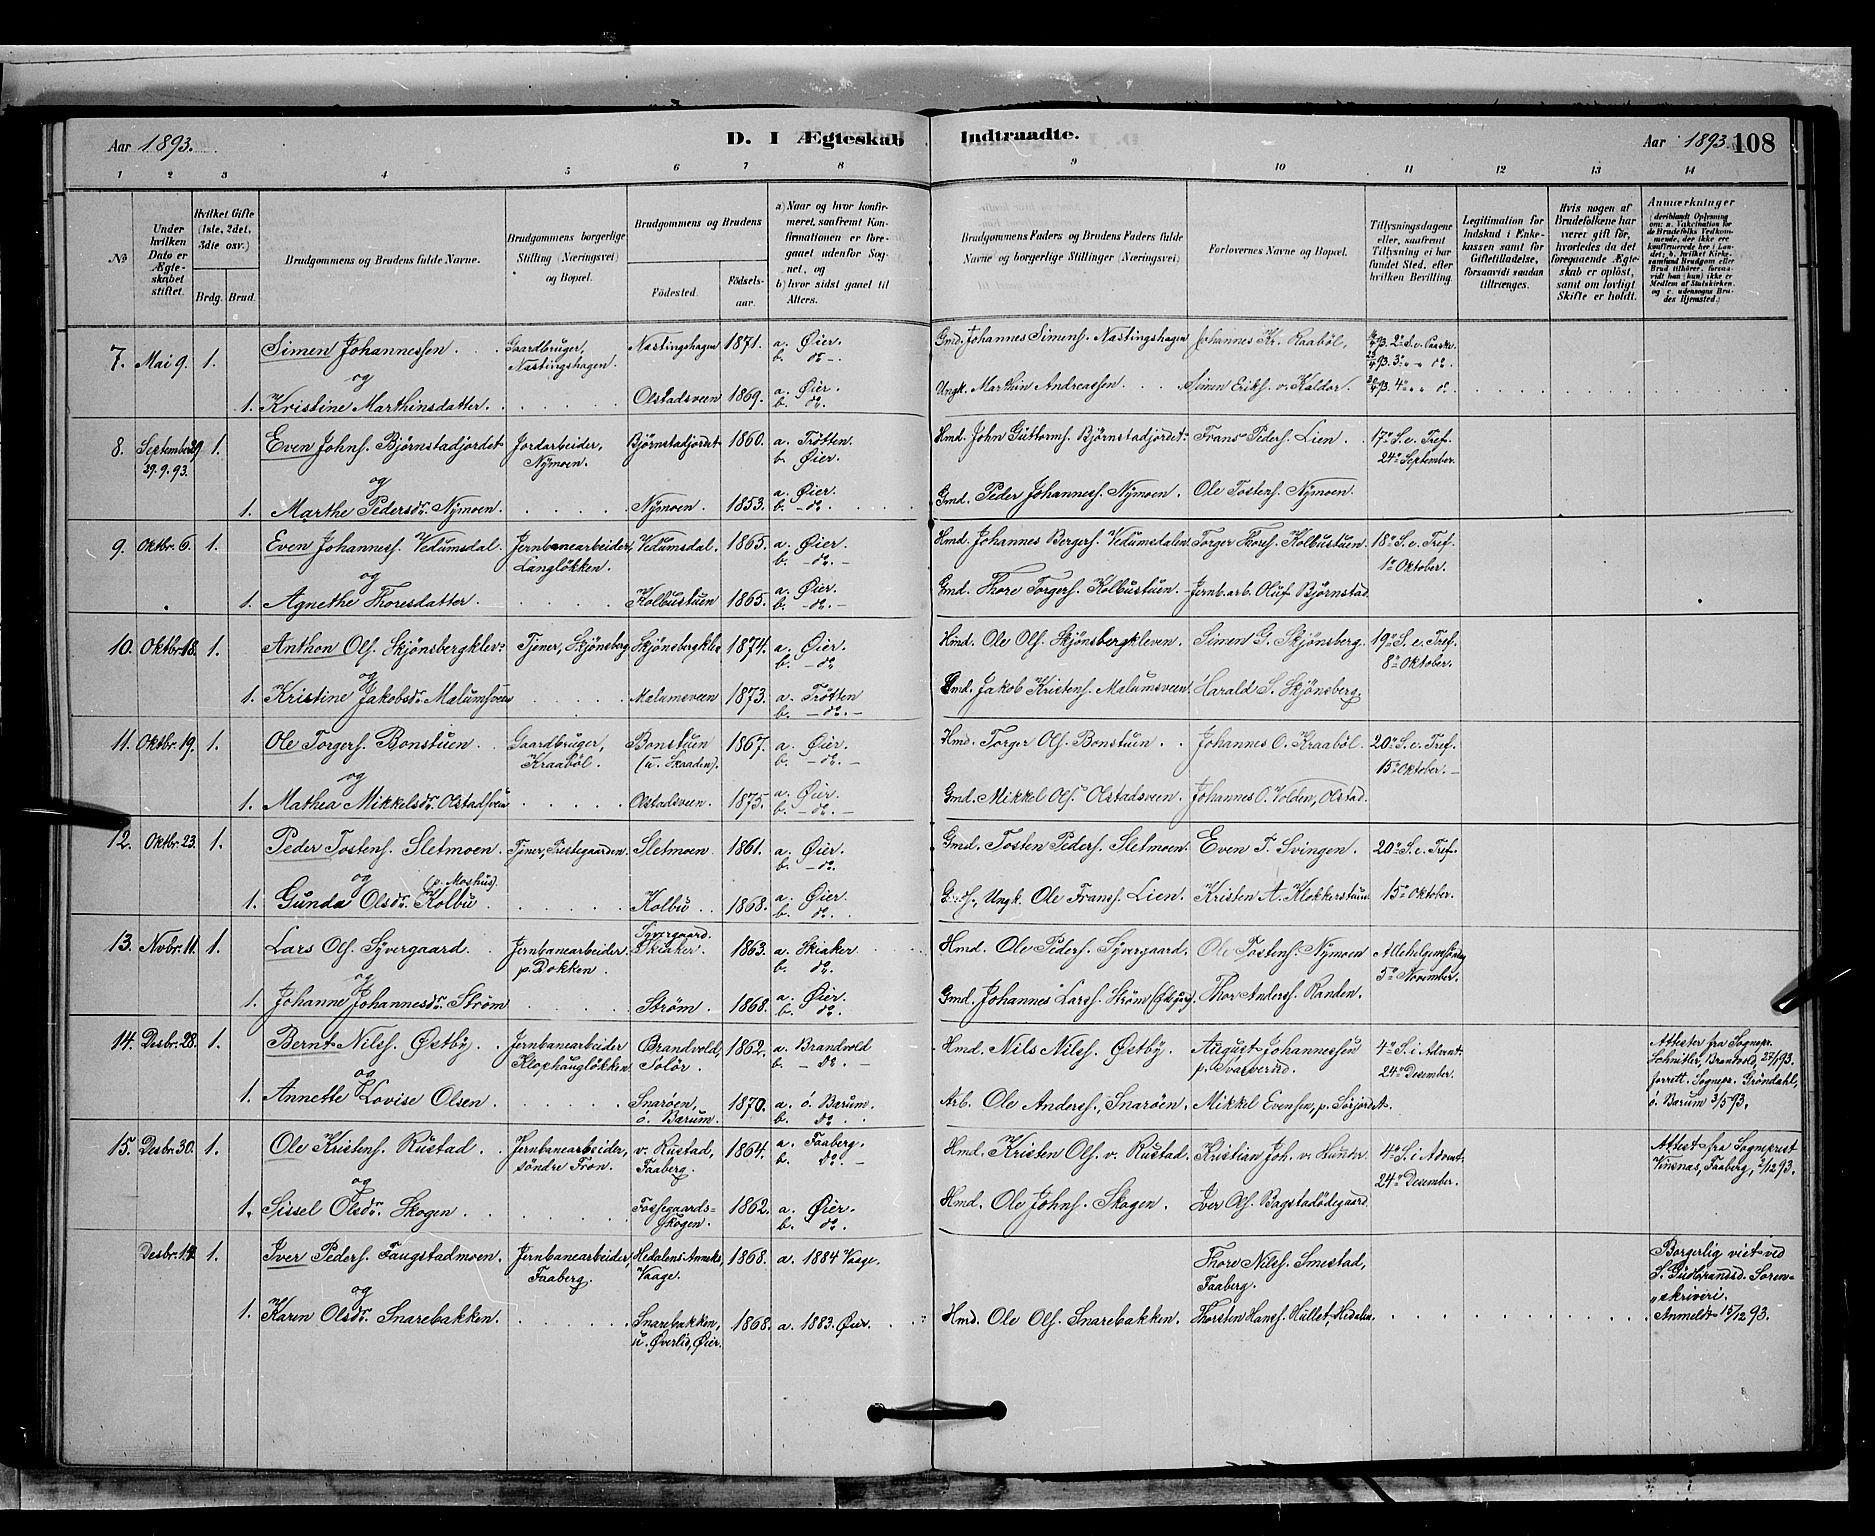 Aar 1893. D. I Ægteskab Indtraadte. Aar 1893. 108
1 2 3 4 5 6 7 8 9 10 11 12 13 14
№
Under hvilken Dato er Ægteskabet stiftet.
Hvilket Gifte (1ste, 2det, 3die osv.)
Brdg. Brud.
Brudgommens og Brudens fulde Navne.
Brudgommens borgerlige Stilling (Næringsvei) og Bopæl.
Brudgommens og Brudens
Fødested.
Fødselsaar.
a) Naar og hvor konfirmeret, saafremt Konfirmationen er foregaaet udenfor Sognet, og
b) hvor sidst gaaet til Alters.
Brudgommens Faders og Brudens Faders fulde Navne og borgerlige Stillinger (Næringsvei)
Forlovernes Navne og Bopæl.
Tillysningsdagene eller, saafremt Tillysning ei har fundet Sted, efter hvilken Bevilling.
Legitimation for Indskud i Enkekassen samt for Giftetilladelse, forsaavidt saadan tiltrænges.
Hvis nogen af Brudefolkene har været gift før, hvorledes da det foregaaende Ægteskab er opløst, samt om lovligt Skifte er holdt.
Anmærkninger
(deriblandt Oplysning om: a. Vakcination for de Brudefolks Vedkommende, der ikke ere konfirmerede her i Landet; b. hvilket Kirkesamfund Brudgom eller Brud tilhører, forsaavidt han (hun) ikke er Medlem af Statskirken, og c. udensogns Brudes Hjemsted.)
7. Mai 9. 1. Simen Johannessen. Gaardbruger, Nastingshagen. Nastingshagen 1871. a. Øier. b. do. Gmd. Johannes Simens. Nastingshagen Johannes Kr. Raabøl. 2den S. e. Paaske.
og
1. Kristine Marthinsdatter. Olstadsveen 1869. a. Øier. b. do. Ungk. Marthin Andreassen. Simen Eriks. v. Kaldor.
8. September 29 29.9.93. 1. Even Johns. Bjørnstadjordet Jordarbeider, Nymoen. Bjørnstadjordet 1860. a. Trøtten. b. Øier. Hmd. John Guttorms. Bjørnstadjordet Frans Peders. Lien. 17de S. e. Tref. 24de September.
og
1. Marthe Pedersdr. Nymoen. Nymoen. 1853. a. Øier. b. do. Gmd. Peder Johanness. Nymoen. Ole Tostens. Nymoen.
9. Oktbr. 6. 1. Even Johanness. Vedumsdal. Jernbanearbeider, Langløkken. Vedumsdal. 1865. a. Øier. b. do. Hmd. Johannes Bergers. Vedumsdalen. Torger Thores. Kolbustuen. 18de S. e. Tref. 1ste Oktober.
og
1. Agnethe Thoresdatter. Kolbustuen 1865. a. Øier. b. do. Gmd. Thore Torgers. Kolbustuen. Jernb.arb. Oluf Bjørnstad.
10. Oktbr. 18. 1. Anthon Ols. Skjønsbergklev: Tjener, Skjønsberg Skjønsbergklev 1874. a. Øier. b. do. Hmd. Ole Ols. Skjønsbergkleven. Simen G. Skjønsberg. 19de S. e. Tref. 8de Oktober.
og
1. Kristine Jakobsdr. Malumsveen Malumsveen 1873. a. Trøtten b. do. Gmd. Jakob Kristens. Malumsveen. Harald S. Skjønsberg.
11. Oktbr. 19. 1. Ole Torgers. Bonstuen. Gaardbruger, Kraabøl. Bonstuen (u. Skaaden). 1867. a. Øier. b. do. Hmd. Torger Ols. Bonstuen. Johannes O. Kraabøl. 20de S. e. Tref. 15de Oktober.
og
1. Mathea Mikkelsdr. Olstadsveen Olstadsveen. 1875. a. Øier. b. do. Gmd. Mikkel Ols. Olstadsveen. Johannes O. Volden, Olstad.
12. Oktbr. 23. 1. Peder Tostens. Sletmoen. Tjener, Prestegaarden. Sletmoen 1861. a. Øier. b. do. Gmd. Tosten Peders. Sletmoen. Even T. Svingen. 20de S. e. Tref.
og (p. Moshus).
1. Gunda Olsdr. Kolbu. Kolbu 1868. a. Øier. b. do. Ungk. Ole Franss. Lien. Kristen A. Klokkerstuen 15de Oktober.
13. Nvbr. 11. 1. Lars Ols. Syvergaard. Jernbanearbeider p. Dokken. Syvergaard. Skiaker. 1863. a. Skiaker b. do. Hmd. Ole Peders. Syvergaard. Ole Tostens. Nymoen Allehelgenssøndag 5te November.
og
1. Johanne Johannesdr. Strøm Strøm 1868. a. Øier. b. do. Gmd. Johannes Larss. Strøm Thor Anderss. Randen.
14. Desbr. 28. 1. Bernt Nilss. Østby. Jernbanearbeider Klophaugløkken. Brandvold, Solør. 1862. a. Brandvold b. do. Hmd. Nils Nilss. Østby. August Johannessen p. Svarverud. 4de S. i Advent. 24de Desember. Attester fra Sognepr. Schnitler, Brandvold, 27/1 93. forrett. Sognepr. Grøndahl, ø. Barum 3/5 93.
og
1. Annette Lovise Olsen. Snarøen, ø. Barum. 1870. a. ø. Barum. b. do. Arb. Ole Anderss., Snarøen. Mikkel Evensen, p. Sørjordet.
15. Desbr. 30. 1. Ole Kristens. Rustad. Jernbanearbeider, søndre Fron. v. Rustad, Faaberg. 1864. a. Faaberg. b. do. Hmd. Kristen Ols. v. Rustad. Kristian Joh. v. Hunder 4de S. i Advent. 24de Desember. Attest fra Sogneprest Vinsnæs, Faaberg, 2/12 93.
og
1. Sissel Olsdr. Skogen. Fossegaards-Skogen. 1862. a. Øier. b. do. Hmd. Ole Johns. Skogen. Iver Ols. Bagstadødegaard.
Desbr. 14. 1. Iver Peders. Faugstadmoen. Jernbanearbeider, Faaberg. Hedalens Anneks, Vaage. 1868. a. 1884 Vaage. Thore Nilss. Smestad, Faaberg. Borgerlig viet ved S. Gudbrandsd. Sorenskriveri. Anmeldt 15/12 93.
og
1. Karen Olsdr. Snarebakken. Snarebakken, u. Øverlid, Øier. 1868. a. 1883. Øier. Hmd. Ole Ols. Snarebakken. Thorsten Hanss. Hullet, Hedalen.